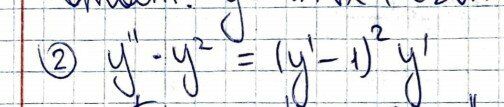 ② y'' - y² = (y' - 1)² y'